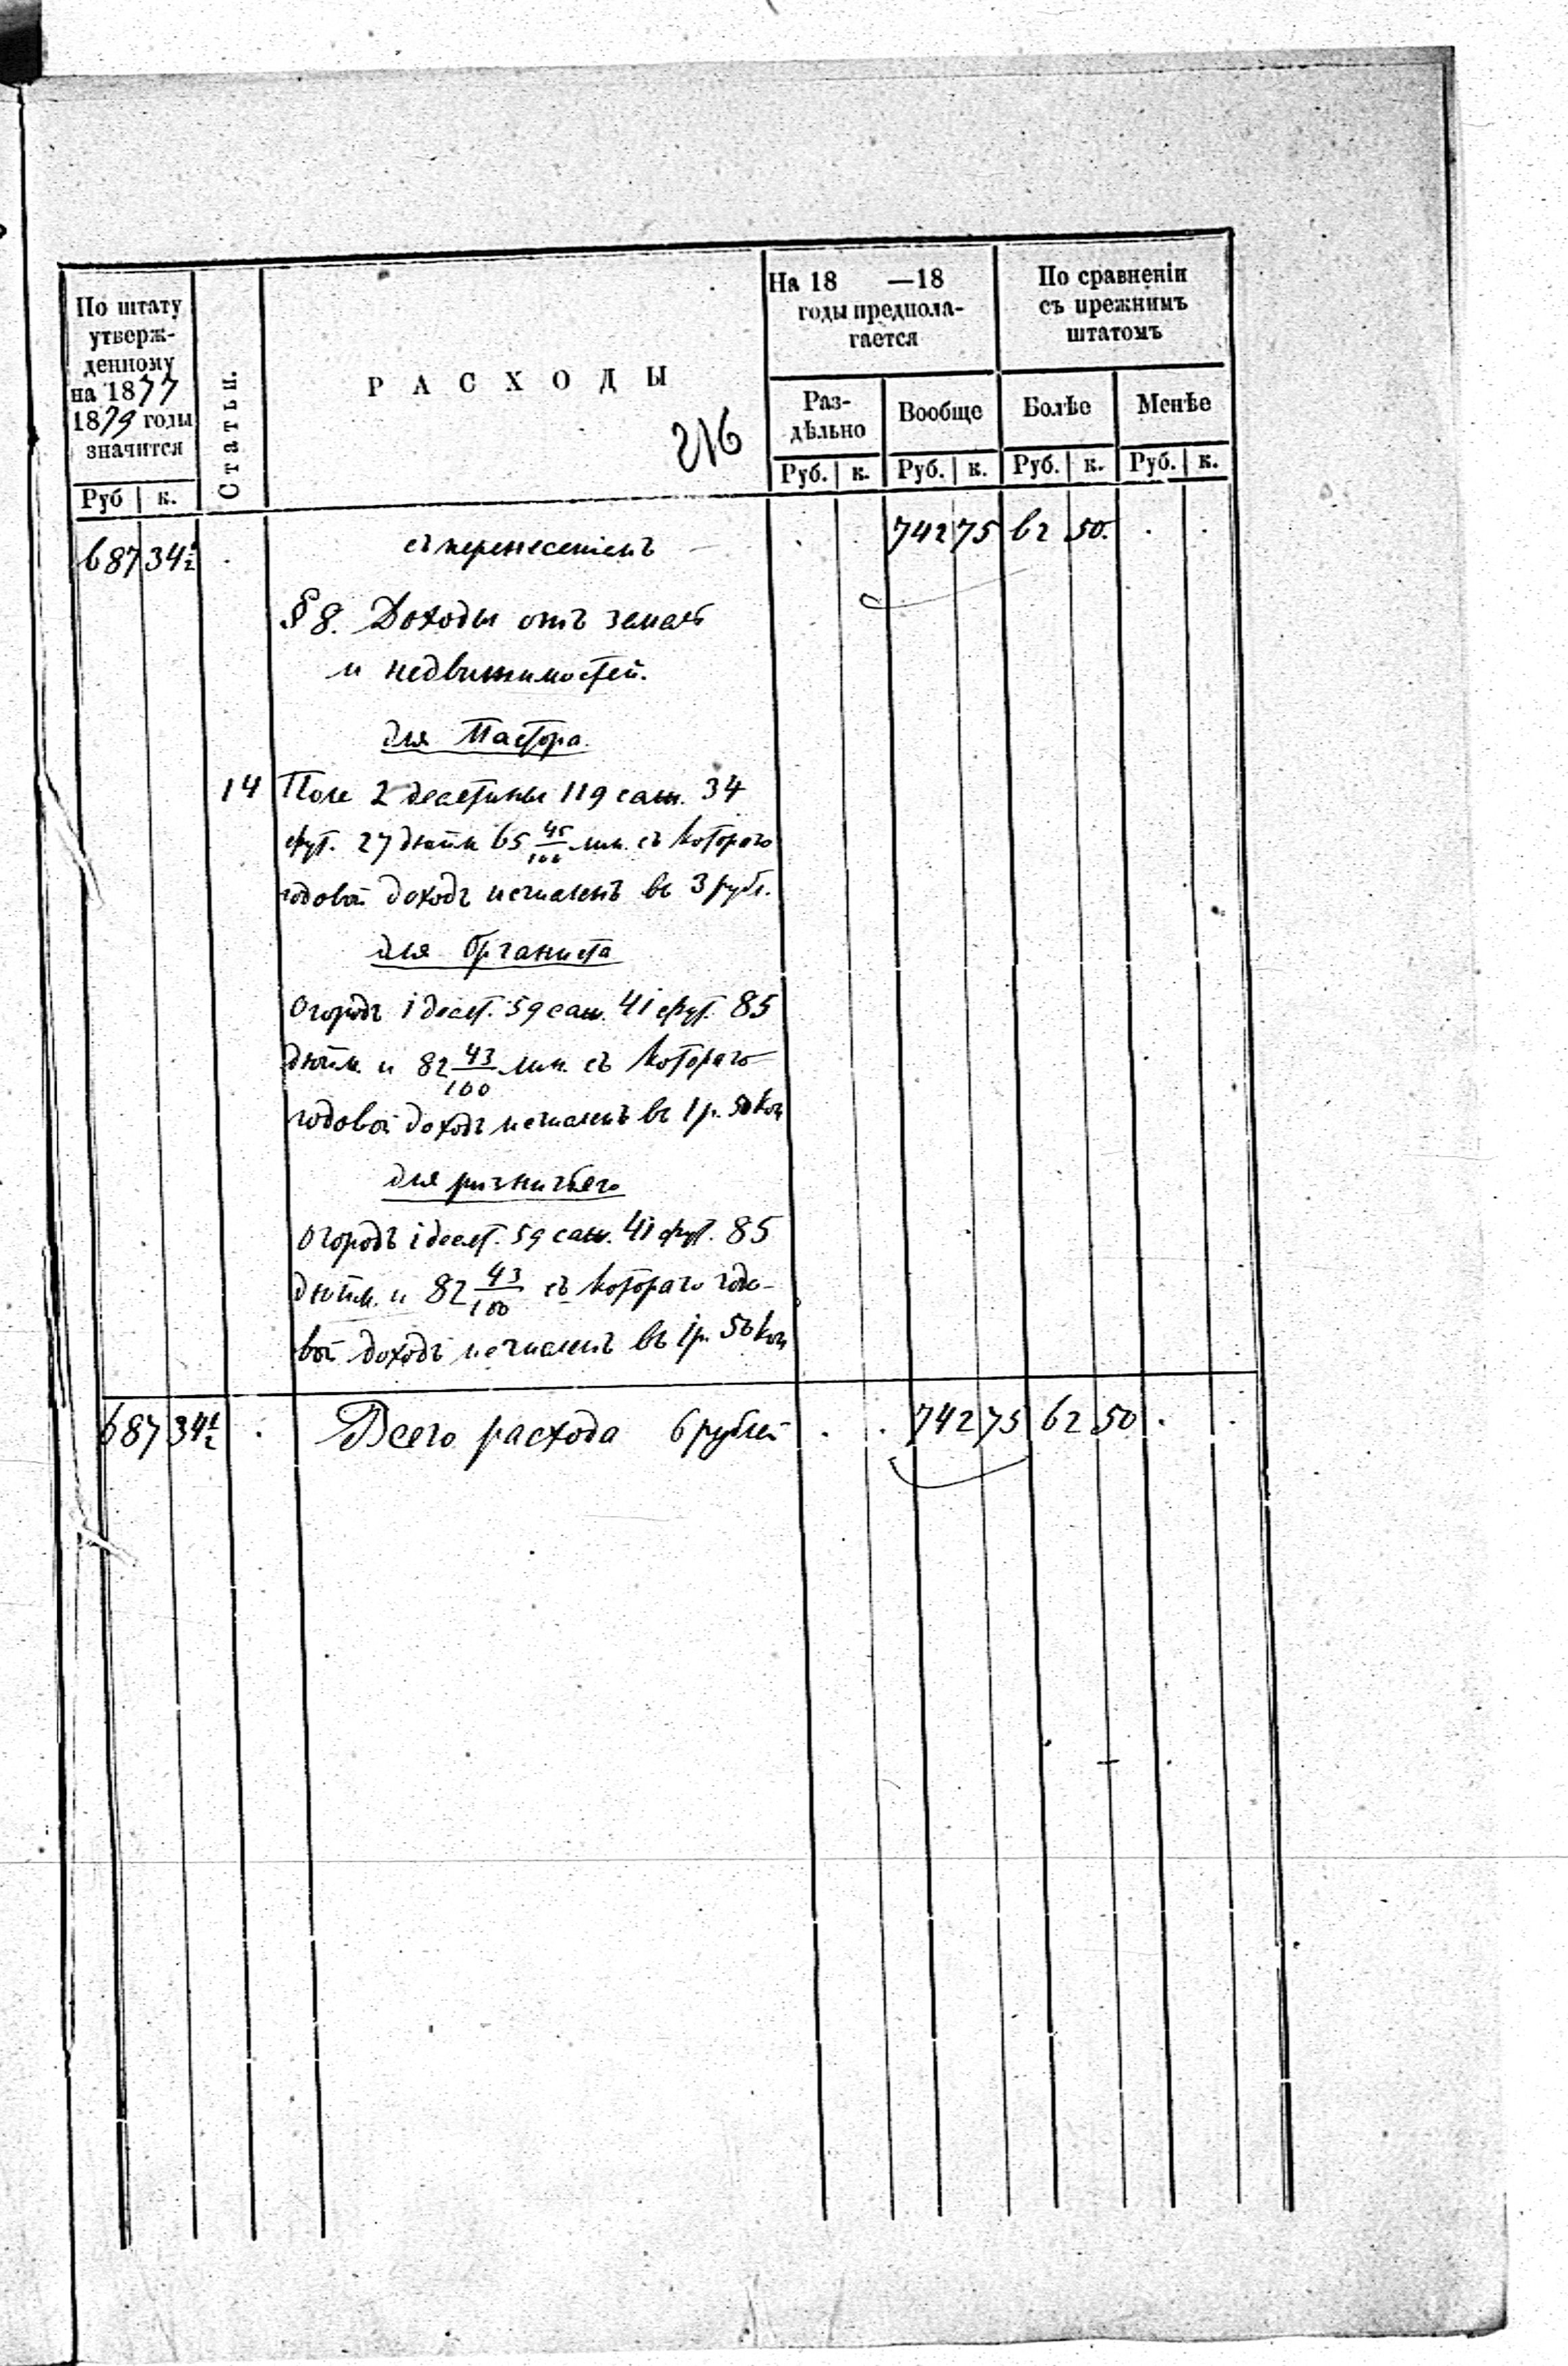 По штату
утверж-
денному
на 1877
1879 годы
значится
Руб к.
Статьи.
РАСХОДЫ
216
На 18 —18
годы предпола-
гается
Раз-
дѣльно
Вообще
Руб. к. Руб. к.
По сравненіи
съ прежнимъ
штатомъ
Болѣе Менѣе
Руб. к. Руб. к.
687 34½ . съ перенесеніемъ — . . 742 75 62 50. . .
§ 8. Доходы отъ земель
и недвижимостей.
для Пастора.
14 Поле 2 десятины 119 саж. 34
фут. 27 дюйм 65 45/100 лин. съ котораго
годовой доходъ исчисленъ въ 3 рубл.
для Органиста
Огородъ 1 десят. 59 саж. 41 фут. 85
дюйм. и 82 43/100 лин. съ котораго
годовой доходъ исчисленъ въ 1 р. 50 коп
для ризничьего
Огородъ 1 десят. 59 саж. 41 фут. 85
дюйм. и 82 43/100 съ котораго годо-
вой доходъ исчисленъ въ 1 р. 50 коп
687 34½ . Всего расхода 6 рублей . . 742 75 62 50 . .